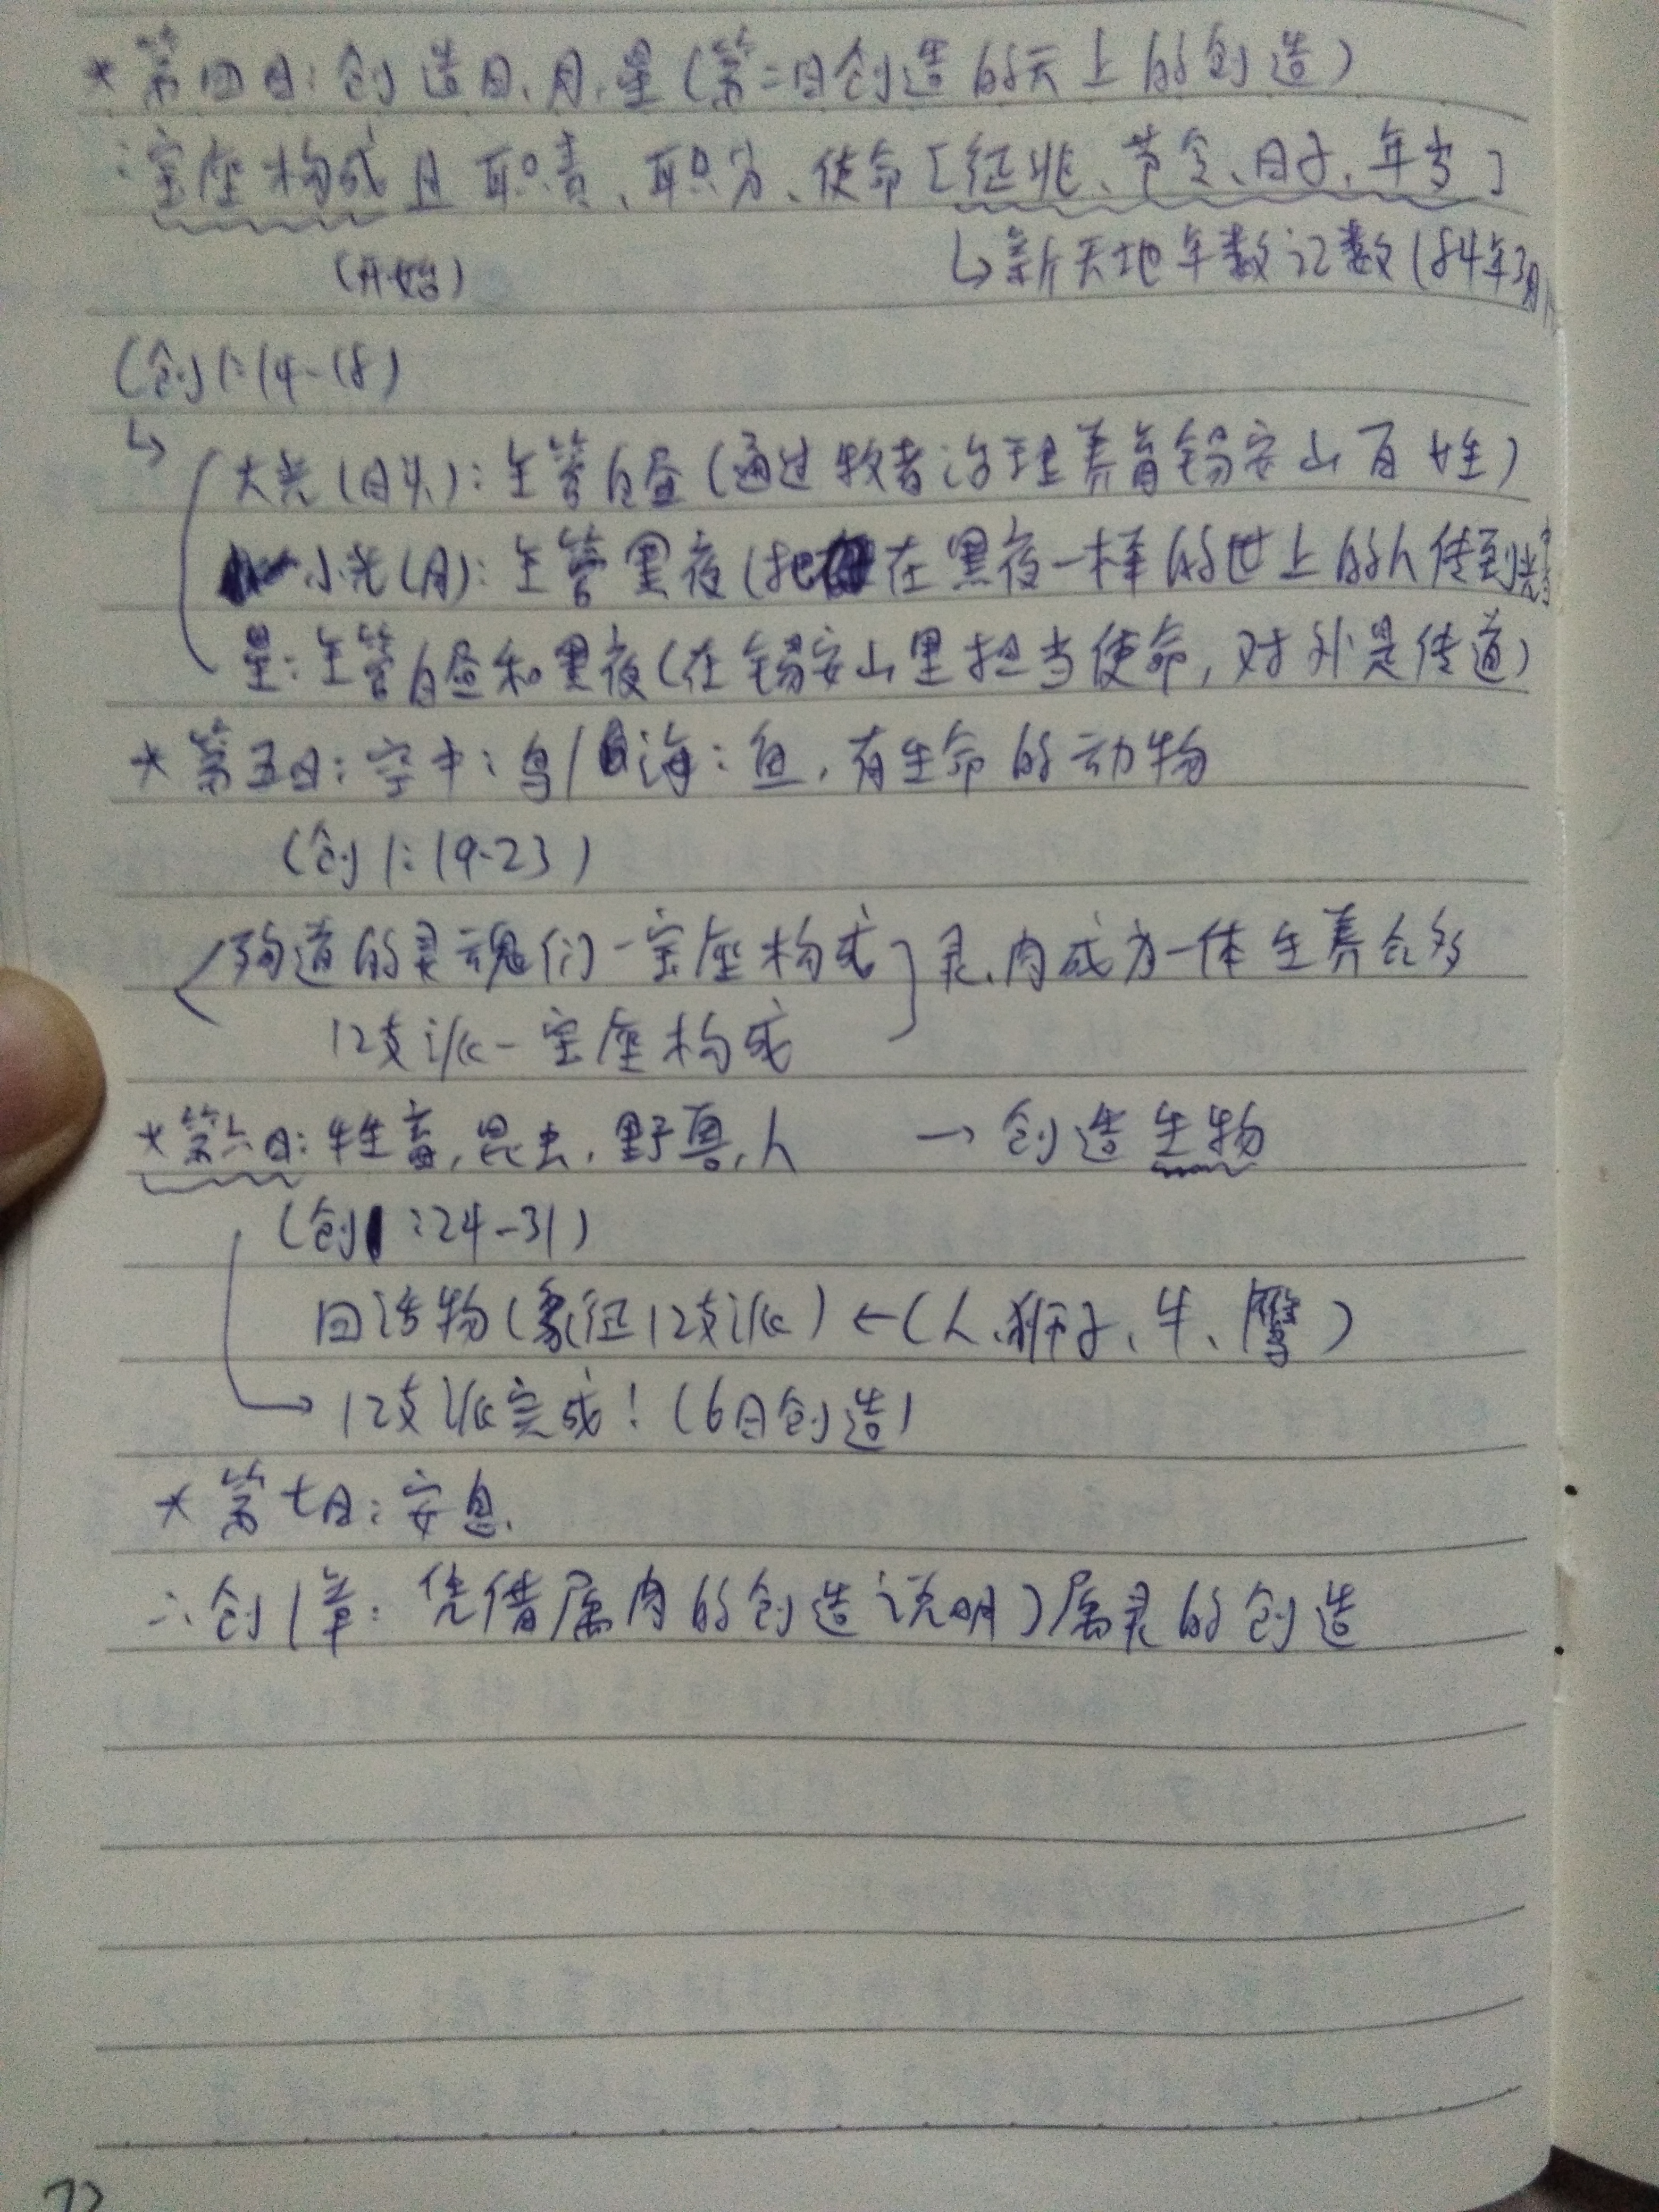 * 第四日: 创造日、月、星(第二日创造的天上的创造)
: 宝座构成且职责、职分、使命[征兆、节令、日子、年岁]
(开始)
↳新天地年数记数(84年3月
(创1:14-18)
↳
大光(日头): 主管白昼(通过牧者治理养育锡安山百姓)
小光(月): 主管黑夜(把在黑夜一样的世上的人传到光
星: 主管白昼和黑夜(在锡安山里担当使命, 对外是传道)
* 第五日: 空中: 鸟/海: 鱼, 有生命的动物
(创1:19-23)
殉道的灵魂们-宝座构成] 灵、肉成为一体生养众多
12支派-宝座构成
* 第六日: 牲畜, 昆虫, 野兽, 人 → 创造生物
(创1:24-31)
四活物(象征12支派) ←(人、狮子、牛、鹰)
→ 12支派完成! (6日创造)
* 第七日: 安息.
∴创1章: 凭借属肉的创造说明)属灵的创造